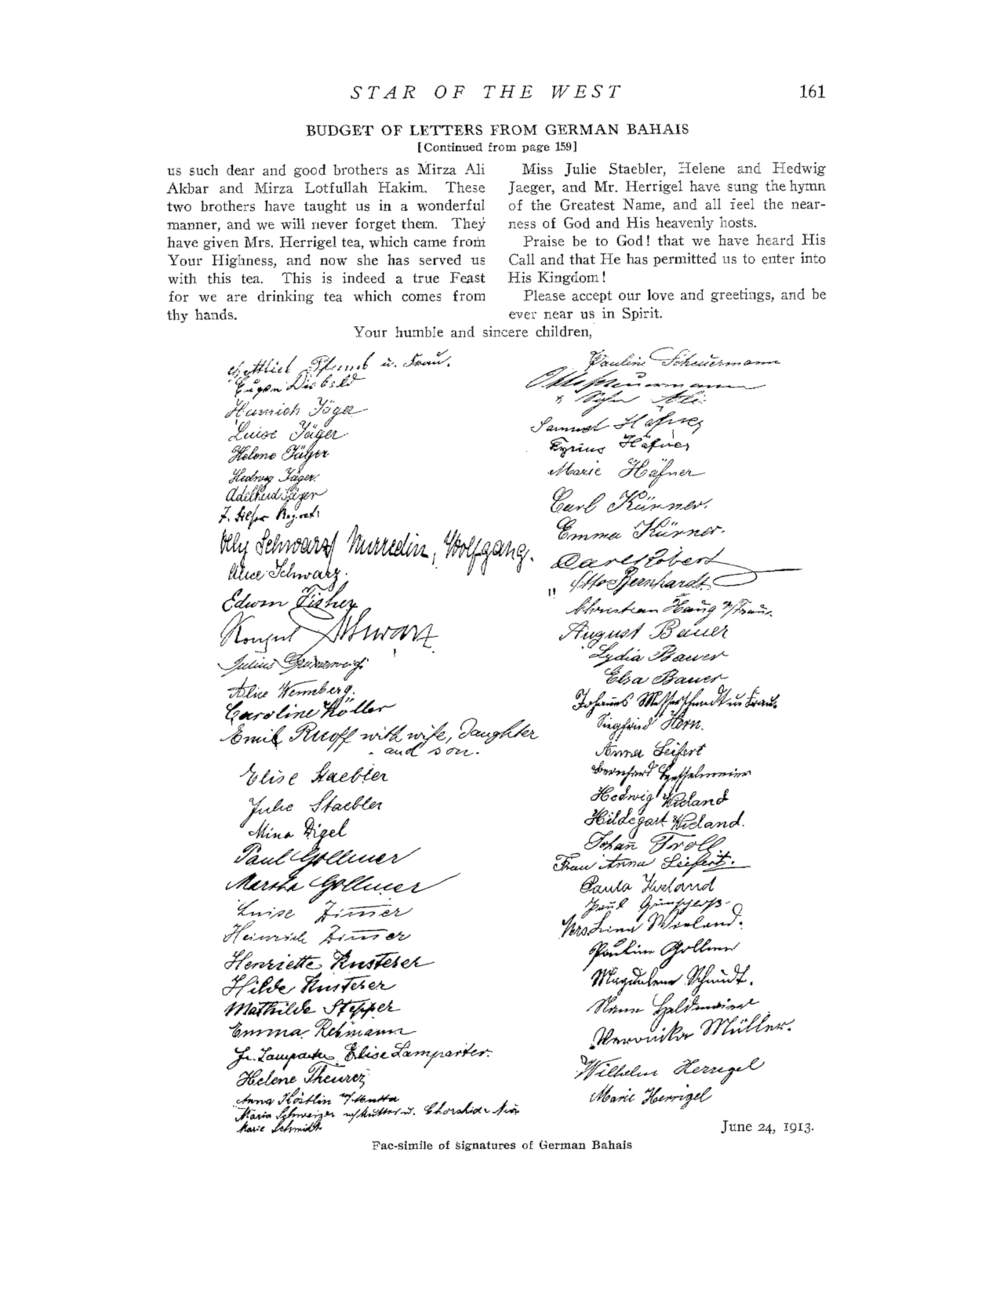 STAR OF THE WEST 161
BUDGET OF LETTERS FROM GERMAN BAHAIS
[Continued from page 159]
us such dear and good brothers as Mirza Ali
Akbar and Mirza Lotfullah Hakim. These
two brothers have taught us in a wonderful
manner, and we will never forget them. They
have given Mrs. Herrigel tea, which came from
Your Highness, and now she has served us
with this tea. This is indeed a true Feast
for we are drinking tea which comes from
thy hands.
Miss Julie Staebler, Helene and Hedwig
Jaeger, and Mr. Herrigel have sung the hymn
of the Greatest Name, and all feel the near-
ness of God and His heavenly hosts.
Praise be to God! that we have heard His
Call and that He has permitted us to enter into
His Kingdom!
Please accept our love and greetings, and be
ever near us in Spirit.
Your humble and sincere children,
u. Frau.
Eugen
Heinrich Jäger
Luise Jäger
Helene Jäger
Hedwig Jäger.
Adelheid Jäger
Schwarz Nurredin, Wolfgang.
Alice Schwarz.
Edwin Fisher
Konsul Schwarz
Julius
Alice
Caroline Köller
Emil Ruoff with wife, Daughter
and son.
Elise Staebler
Julie Staebler
Mina Digel
Paul Gollmer
Martha Gollmer
Luise Zimmer
Heinrich Zimmer
Henriette Kusterer
Hilde Kusterer
Mathilde Stepper
Emma Rehmann
Fr. Lamparter, Elise Lamparter.
Helene Theurer
Anna Köstlin
Maria Schweizer
Marie Schmidt
Paulin Scheuermann
Scheuermann
Samuel Häfner
Cyrius Häfner
Marie Häfner
Carl Kürner.
Emma Kürner.
Carl Robert
" Otto Bernhardt
Christian Haug
August Bauer
Lydia Bauer
Elsa Bauer
Johannes
Siegfried Horn.
Anna Seifert
Bernhard
Hedwig Wieland
Hildegart Wieland.
Johan Troll
Frau Anna Seifert.
Paula Wieland
Paul
Wieland.
Paulin Gollmer
Magdalena Schmidt.
Veronika Müller.
Wilhelm Herrigel
Marie Herrigel
June 24, 1913.
Fac-simile of signatures of German Bahais